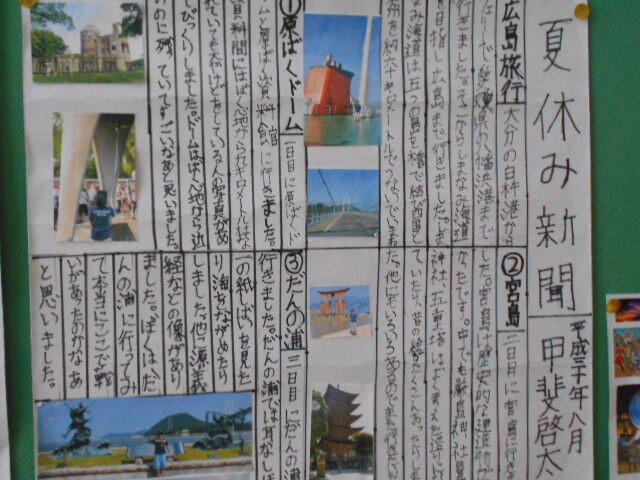 夏休み新聞
平成三十年八月
甲斐啓太
広島旅行
大分の臼杵港から
フェリーで愛媛県の八幡浜港まで
行きました。そこからしまなみ海道
を目指し広島まで行きました。しま
なみ海道は五つの島を橋で結び四国と
本州を約六十キロメートルでつないでいます
①原ばくドーム 一日目に原ばくド
ームと原ばく資料館に行きました。
資料館にはばく心地から一キロメートルはな
れていても大やけどをしている人の写真があ
りびっくりしました。ドームはばく心地から近
いのに残っていてすごいなあと思いました。
②宮島 二日目に宮島に行きま
した。宮島は歴史的な建造物が多
かったです。中でも厳島神社
神社、五重塔はよく考えた造りに
ていたり、昔の絵がたくさんあったりしまし
た。他にもいろいろあるのでまた行きたい
③だんの浦 三日目にだんの浦
行きました。だんの浦では耳なしほ
一の紙しばいを見た
り海をながめたり
しました。他に源義
経などの像があり
ました。ぼくは、だ
んの浦に行ってみ
て本当にここで戦
いがあったのかなあ
と思いました。